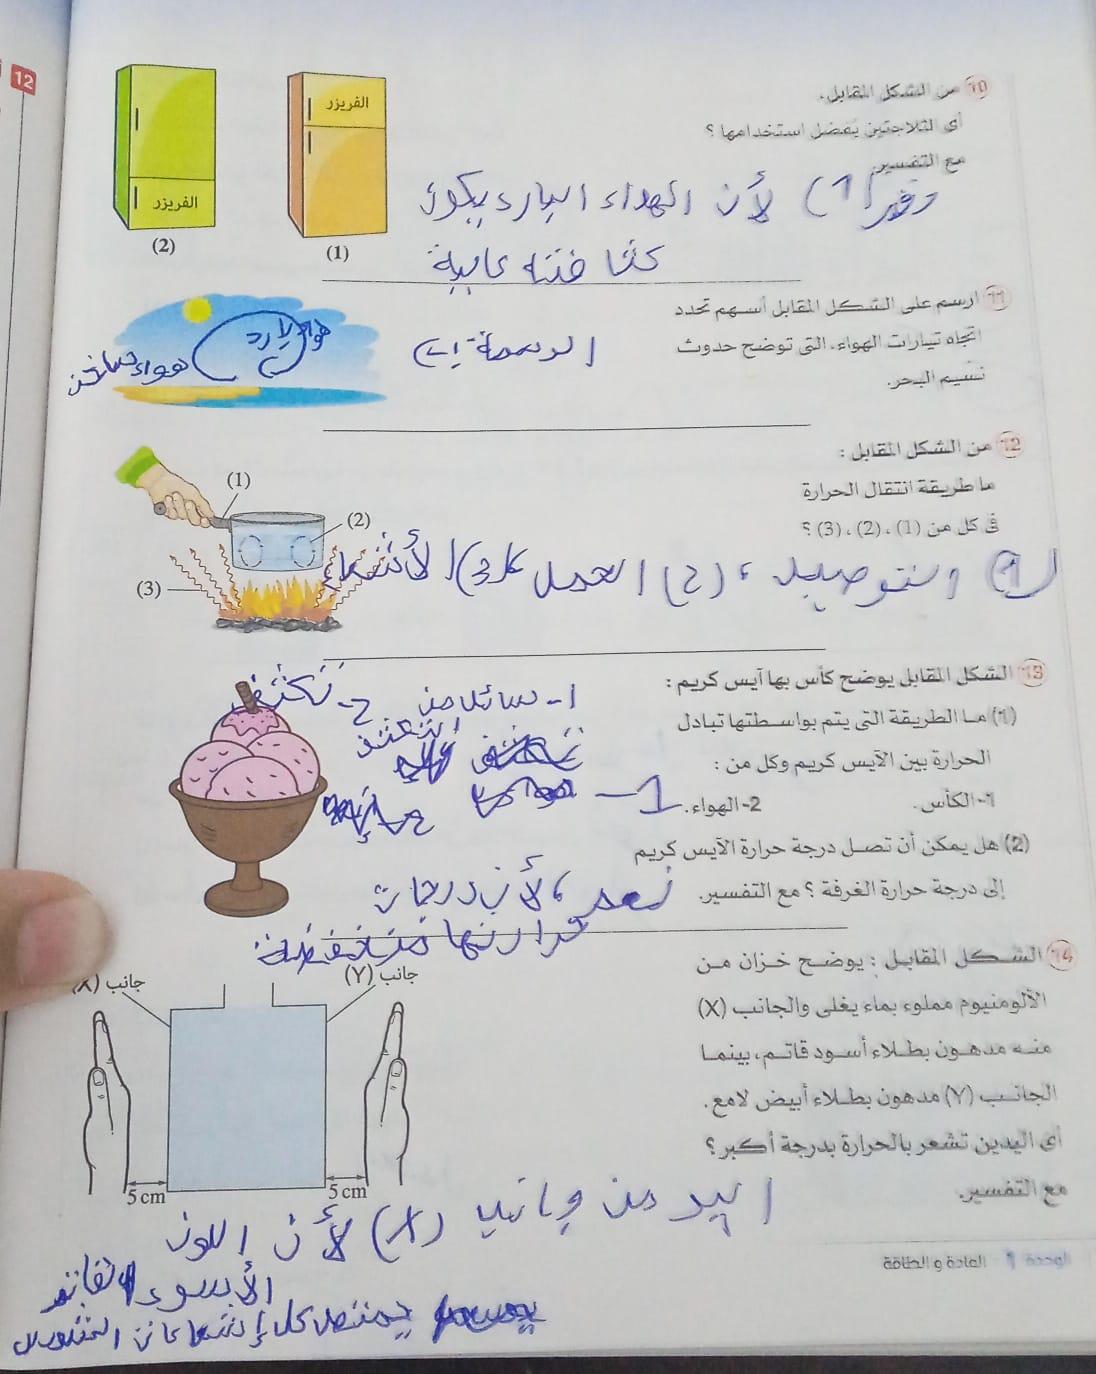 12
10 من الشكل المقابل.
أى الثلاجتين يفضل استخدامها ؟
مع التفسير.
الفريزر
(1)
الفريزر
(2)
رقم (1) لأن الهواء البارد يكون
كثافته عالية
11 ارسم على الشكل المقابل أسهم تحدد
اتجاه تيارات الهواء، التى توضح حدوث
نسيم البحر.
الرسمة
هواء بارد
هواء ساخن
12 من الشكل المقابل :
ما طريقة انتقال الحرارة
فى كل من (1)، (2)، (3) ؟
(1)
(2)
(3)
(1) التوصيل ، (2) الحمل (3) الأشعاع
13 الشكل المقابل يوضح كأس بها آيس كريم :
(1) ما الطريقة التى يتم بواسطتها تبادل
الحرارة بين الآيس كريم وكل من :
1- الكأس. 2- الهواء.
(2) هل يمكن أن تصل درجة حرارة الآيس كريم
إلى درجة حرارة الغرفة ؟ مع التفسير.
نعم ، لأن درجات
حرارتها منخفضة
14 الشكل المقابل : يوضح خزان من
الألومنيوم مملوء بماء يغلى والجانب (X)
منه مدهون بطلاء أسود قاتم، بينما
الجانب (Y) مدهون بطلاء أبيض لامع.
أى اليدين تشعر بالحرارة بدرجة أكبر ؟
مع التفسير.
جانب (X)
جانب (Y)
5 cm
5 cm
اليد من جانب (X) لأن اللون
الأسود القاتم
يمتص كل إشعاعات الشمس
الوحدة 1 المادة والطاقة